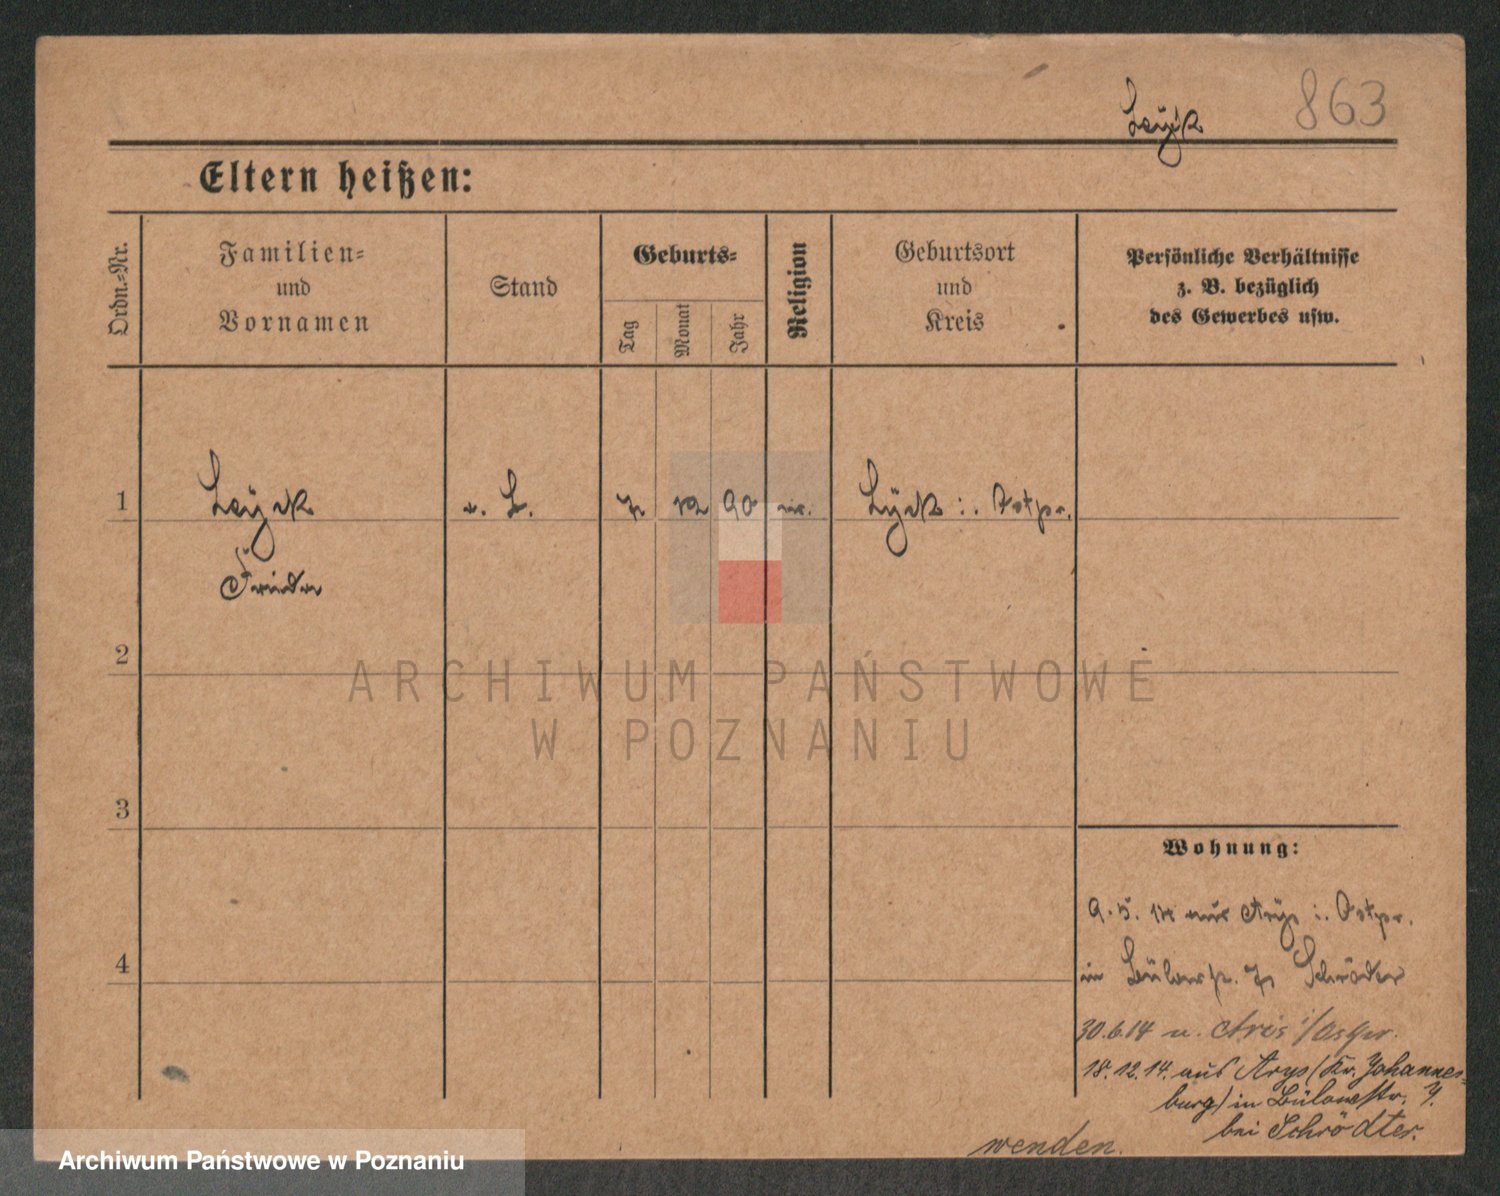 863
Leyck
Eltern heißen:
Ordn.-Nr.
Familien-
und
Vornamen
Stand
Geburts-
Tag
Monat
Jahr
Religion
Geburtsort
und
Kreis
Persönliche Verhältnisse
z. B. bezüglich
des Gewerbes usw.
1
Leyck
7 12 90
Lyck i. Ostpr.
Frieda
2
3
4
Wohnung:
9. 5. 14 aus Arys i. Ostpr.
in Bülowstr. 7 Schrödter
30.6.14 n. Aris i/Ostpr.
18.12.14. aus Arys (Kr. Johannes-
burg) in Bülowstr. 7.
bei Schrödter.
wenden.
ARCHIWUM PAŃSTWOWE
W POZNANIU
Archiwum Państwowe w Poznaniu